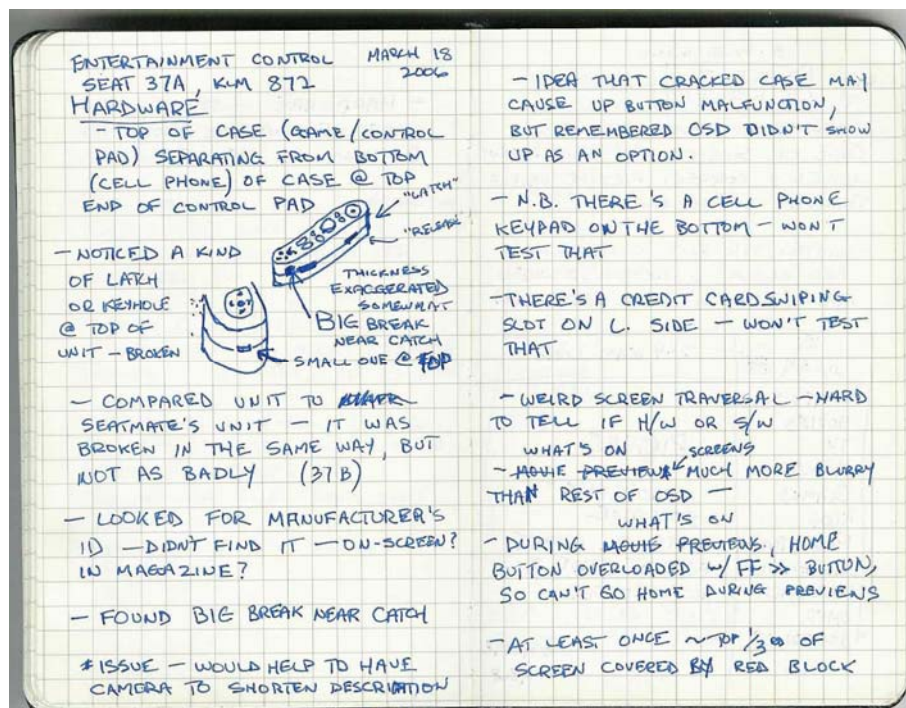 ENTERTAINMENT CONTROL MARCH 18
SEAT 37A, KLM 872 2006
HARDWARE
- TOP OF CASE (GAME/CONTROL
PAD) SEPARATING FROM BOTTOM
(CELL PHONE) OF CASE @ TOP
END OF CONTROL PAD
"LATCH"
"RELEASE"
- NOTICED A KIND
OF LATCH
OR KEYHOLE
@ TOP OF
UNIT - BROKEN
THICKNESS
EXAGGERATED
SOMEWHAT
BIG BREAK
NEAR CATCH
SMALL ONE @ TOP
- COMPARED UNIT TO
SEATMATE'S UNIT - IT WAS
BROKEN IN THE SAME WAY, BUT
NOT AS BADLY (37B)
- LOOKED FOR MANUFACTURER'S
ID - DIDN'T FIND IT - ON-SCREEN?
IN MAGAZINE?
- FOUND BIG BREAK NEAR CATCH
* ISSUE - WOULD HELP TO HAVE
CAMERA TO SHORTEN DESCRIPTION
- IDEA THAT CRACKED CASE MAY
CAUSE UP BUTTON MALFUNCTION,
BUT REMEMBERED OSD DIDN'T SHOW
UP AS AN OPTION.
- N.B. THERE'S A CELL PHONE
KEYPAD ON THE BOTTOM - WON'T
TEST THAT
- THERE'S A CREDIT CARD SWIPING
SLOT ON L. SIDE - WON'T TEST
THAT
- WEIRD SCREEN TRAVERSAL - HARD
TO TELL IF H/W OR S/W
WHAT'S ON SCREENS
- MOVIE PREVIEWS MUCH MORE BLURRY
THAN REST OF OSD -
WHAT'S ON
- DURING MOVIE PREVIEWS, HOME
BUTTON OVERLOADED w/ FF >> BUTTON,
SO CAN'T GO HOME DURING PREVIEWS
- AT LEAST ONCE ~ TOP 1/3 OF
SCREEN COVERED BY RED BLOCK